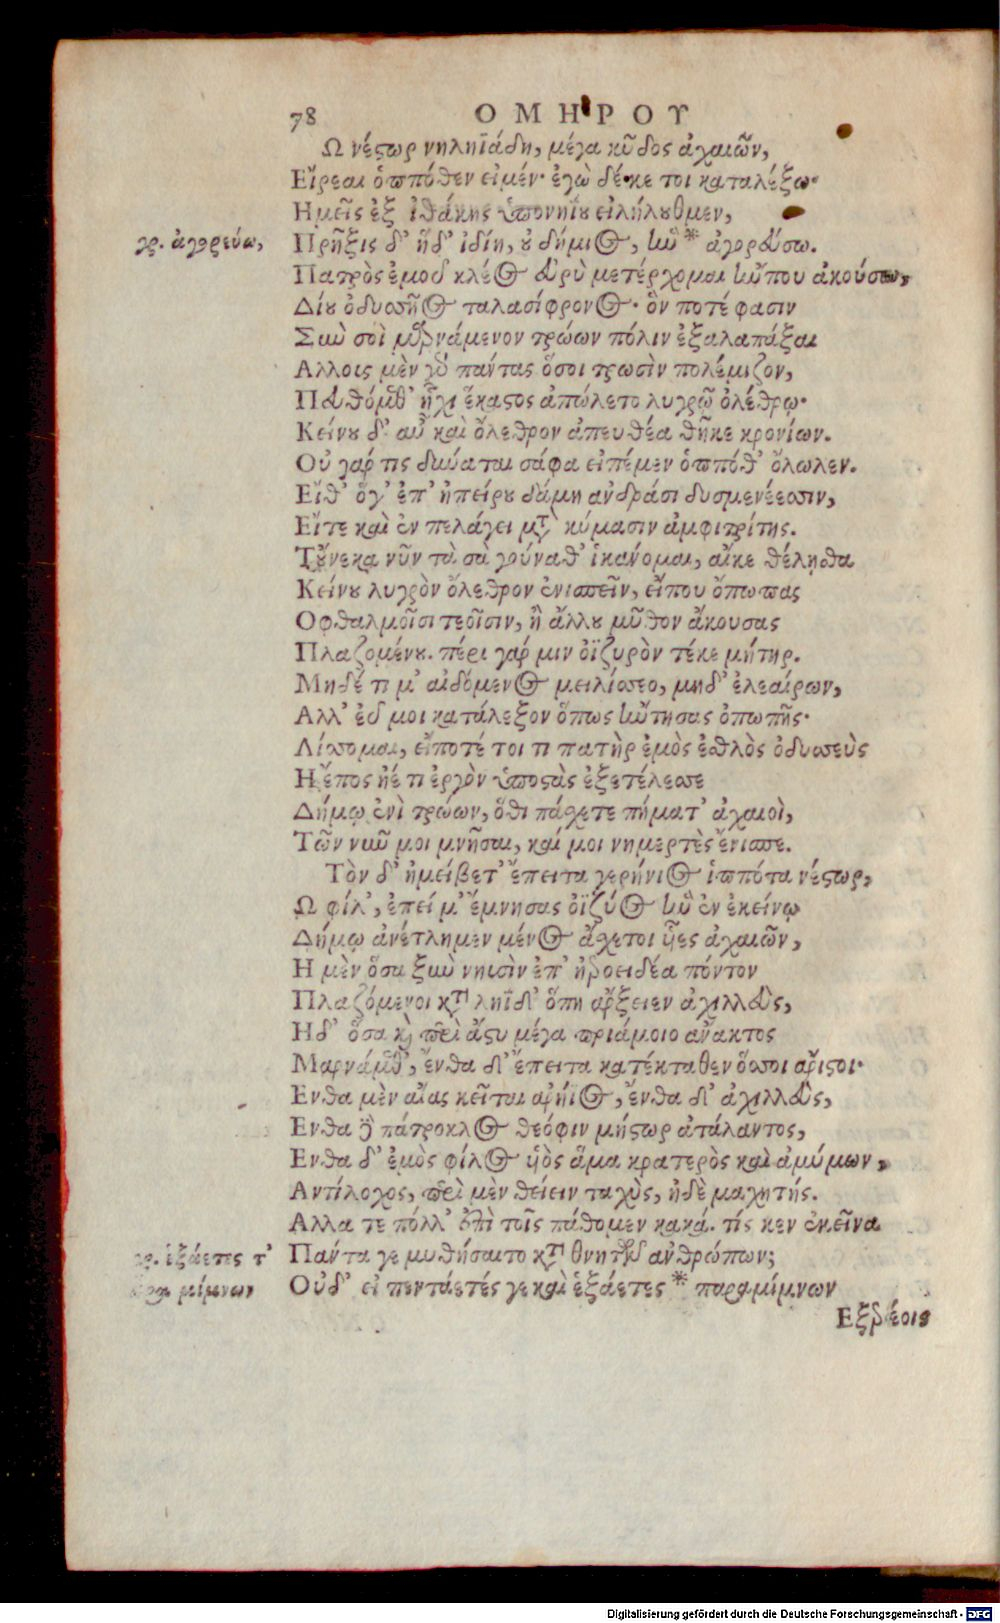 78 ΟΜΗΡΟΥ
Ω νέστωρ νηληϊάδη, μέγα κῦδος ἀχαιῶν,
Εἴρεαι ὁππόθεν εἰμέν· ἐγὼ δέ κε τοι καταλέξω·
Ημεῖς ἐξ ἰθάκης ὑπονηΐου εἰλήλουθμεν,
γρ. ἀγορεύω,
Πρῆξις δ' ἥδ' ἰδίη, οὐ δήμιος, ἣν * ἀγορεύσω.
Πατρὸς ἐμοῦ κλέος εὐρὺ μετέρχομαι ἤν που ἀκούσω,
Δίου ὀδυσσῆος ταλασίφρονος· ὅν ποτέ φασιν
Σὺν σοὶ μαρνάμενον τρώων πόλιν ἐξαλαπάξαι
Αλλοις μὲν γὰρ πάντας ὅσοι τρωσὶν πολέμιζον,
Πευθόμεθ' ἧχι ἕκαστος ἀπώλετο λυγρῷ ὀλέθρῳ·
Κείνου δ' αὖ καὶ ὄλεθρον ἀπευθέα θῆκε κρονίων.
Οὐ γάρ τις δύναται σάφα εἰπέμεν ὁππόθ' ὄλωλεν.
Εἴθ' ὅγ' ἐπ' ἠπείρου δάμη ἀνδράσι δυσμενέεσσιν,
Εἴτε καὶ ἐν πελάγει μετὰ κύμασιν ἀμφιτρίτης.
Τοὔνεκα νῦν τὰ σὰ γούναθ' ἱκάνομαι, αἴκε θέλῃσθα
Κείνου λυγρὸν ὄλεθρον ἐνισπεῖν, εἴπου ὄπωπας
Οφθαλμοῖσι τεοῖσιν, ἢ ἄλλου μῦθον ἄκουσας
Πλαζομένου. πέρι γάρ μιν ὀϊζυρὸν τέκε μήτηρ.
Μηδέ τι μ' αἰδόμενος μειλίσσεο, μηδ' ἐλεαίρων,
Αλλ' εὖ μοι κατάλεξον ὅπως ἤντησας ὀπωπῆς·
Λίσσομαι, εἴποτέ τοι τι πατὴρ ἐμὸς ἐσθλὸς ὀδυσσεὺς
Η ἔπος ἠέ τι ἐργὸν ὑποστὰς ἐξετέλεσσε
Δήμῳ ἐνὶ τρώων, ὅθι πάσχετε πήματ' ἀχαιοὶ,
Τῶν νῦν μοι μνῆσαι, καί μοι νημερτὲς ἔνισπε.
Τὸν δ' ἠμείβετ' ἔπειτα γερήνιος ἱππότα νέστωρ,
Ω φίλ', ἐπεί μ' ἔμνησας ὀϊζύος ἣν ἐν ἐκείνῳ
Δήμῳ ἀνέτλημεν μένος ἄσχετοι υἷες ἀχαιῶν,
Η μὲν ὅσα ξὺν νηυσὶν ἐπ' ἠεροειδέα πόντον
Πλαζόμενοι κατὰ ληΐδ' ὅπη ἄρξειεν ἀχιλλεὺς,
Ηδ' ὅσα καὶ περὶ ἄστυ μέγα πριάμοιο ἄνακτος
Μαρνάμεθ', ἔνθα δ' ἔπειτα κατέκταθεν ὅσσοι ἄριστοι·
Ενθα μὲν αἴας κεῖται ἀρήϊος, ἔνθα δ' ἀχιλλεὺς,
Ενθα δὲ πάτροκλος θεόφιν μήστωρ ἀτάλαντος,
Ενθα δ' ἐμὸς φίλος υἱὸς ἅμα κρατερὸς καὶ ἀμύμων,
Αντίλοχος, περὶ μὲν θείειν ταχὺς, ἠδὲ μαχητής.
Αλλα τε πόλλ' ἐπὶ τοῖς πάθομεν κακά. τίς κεν ἐκεῖνα
γρ. ἑξάετες τ'
Πάντα γε μυθήσαιτο κατὰ θνητῶν ἀνθρώπων;
παρα μίμνων
Οὐδ' εἰ πεντάετές γε καὶ ἑξάετες * παραμίμνων
Εξερέοις
Digitalisierung gefördert durch die Deutsche Forschungsgemeinschaft - DFG